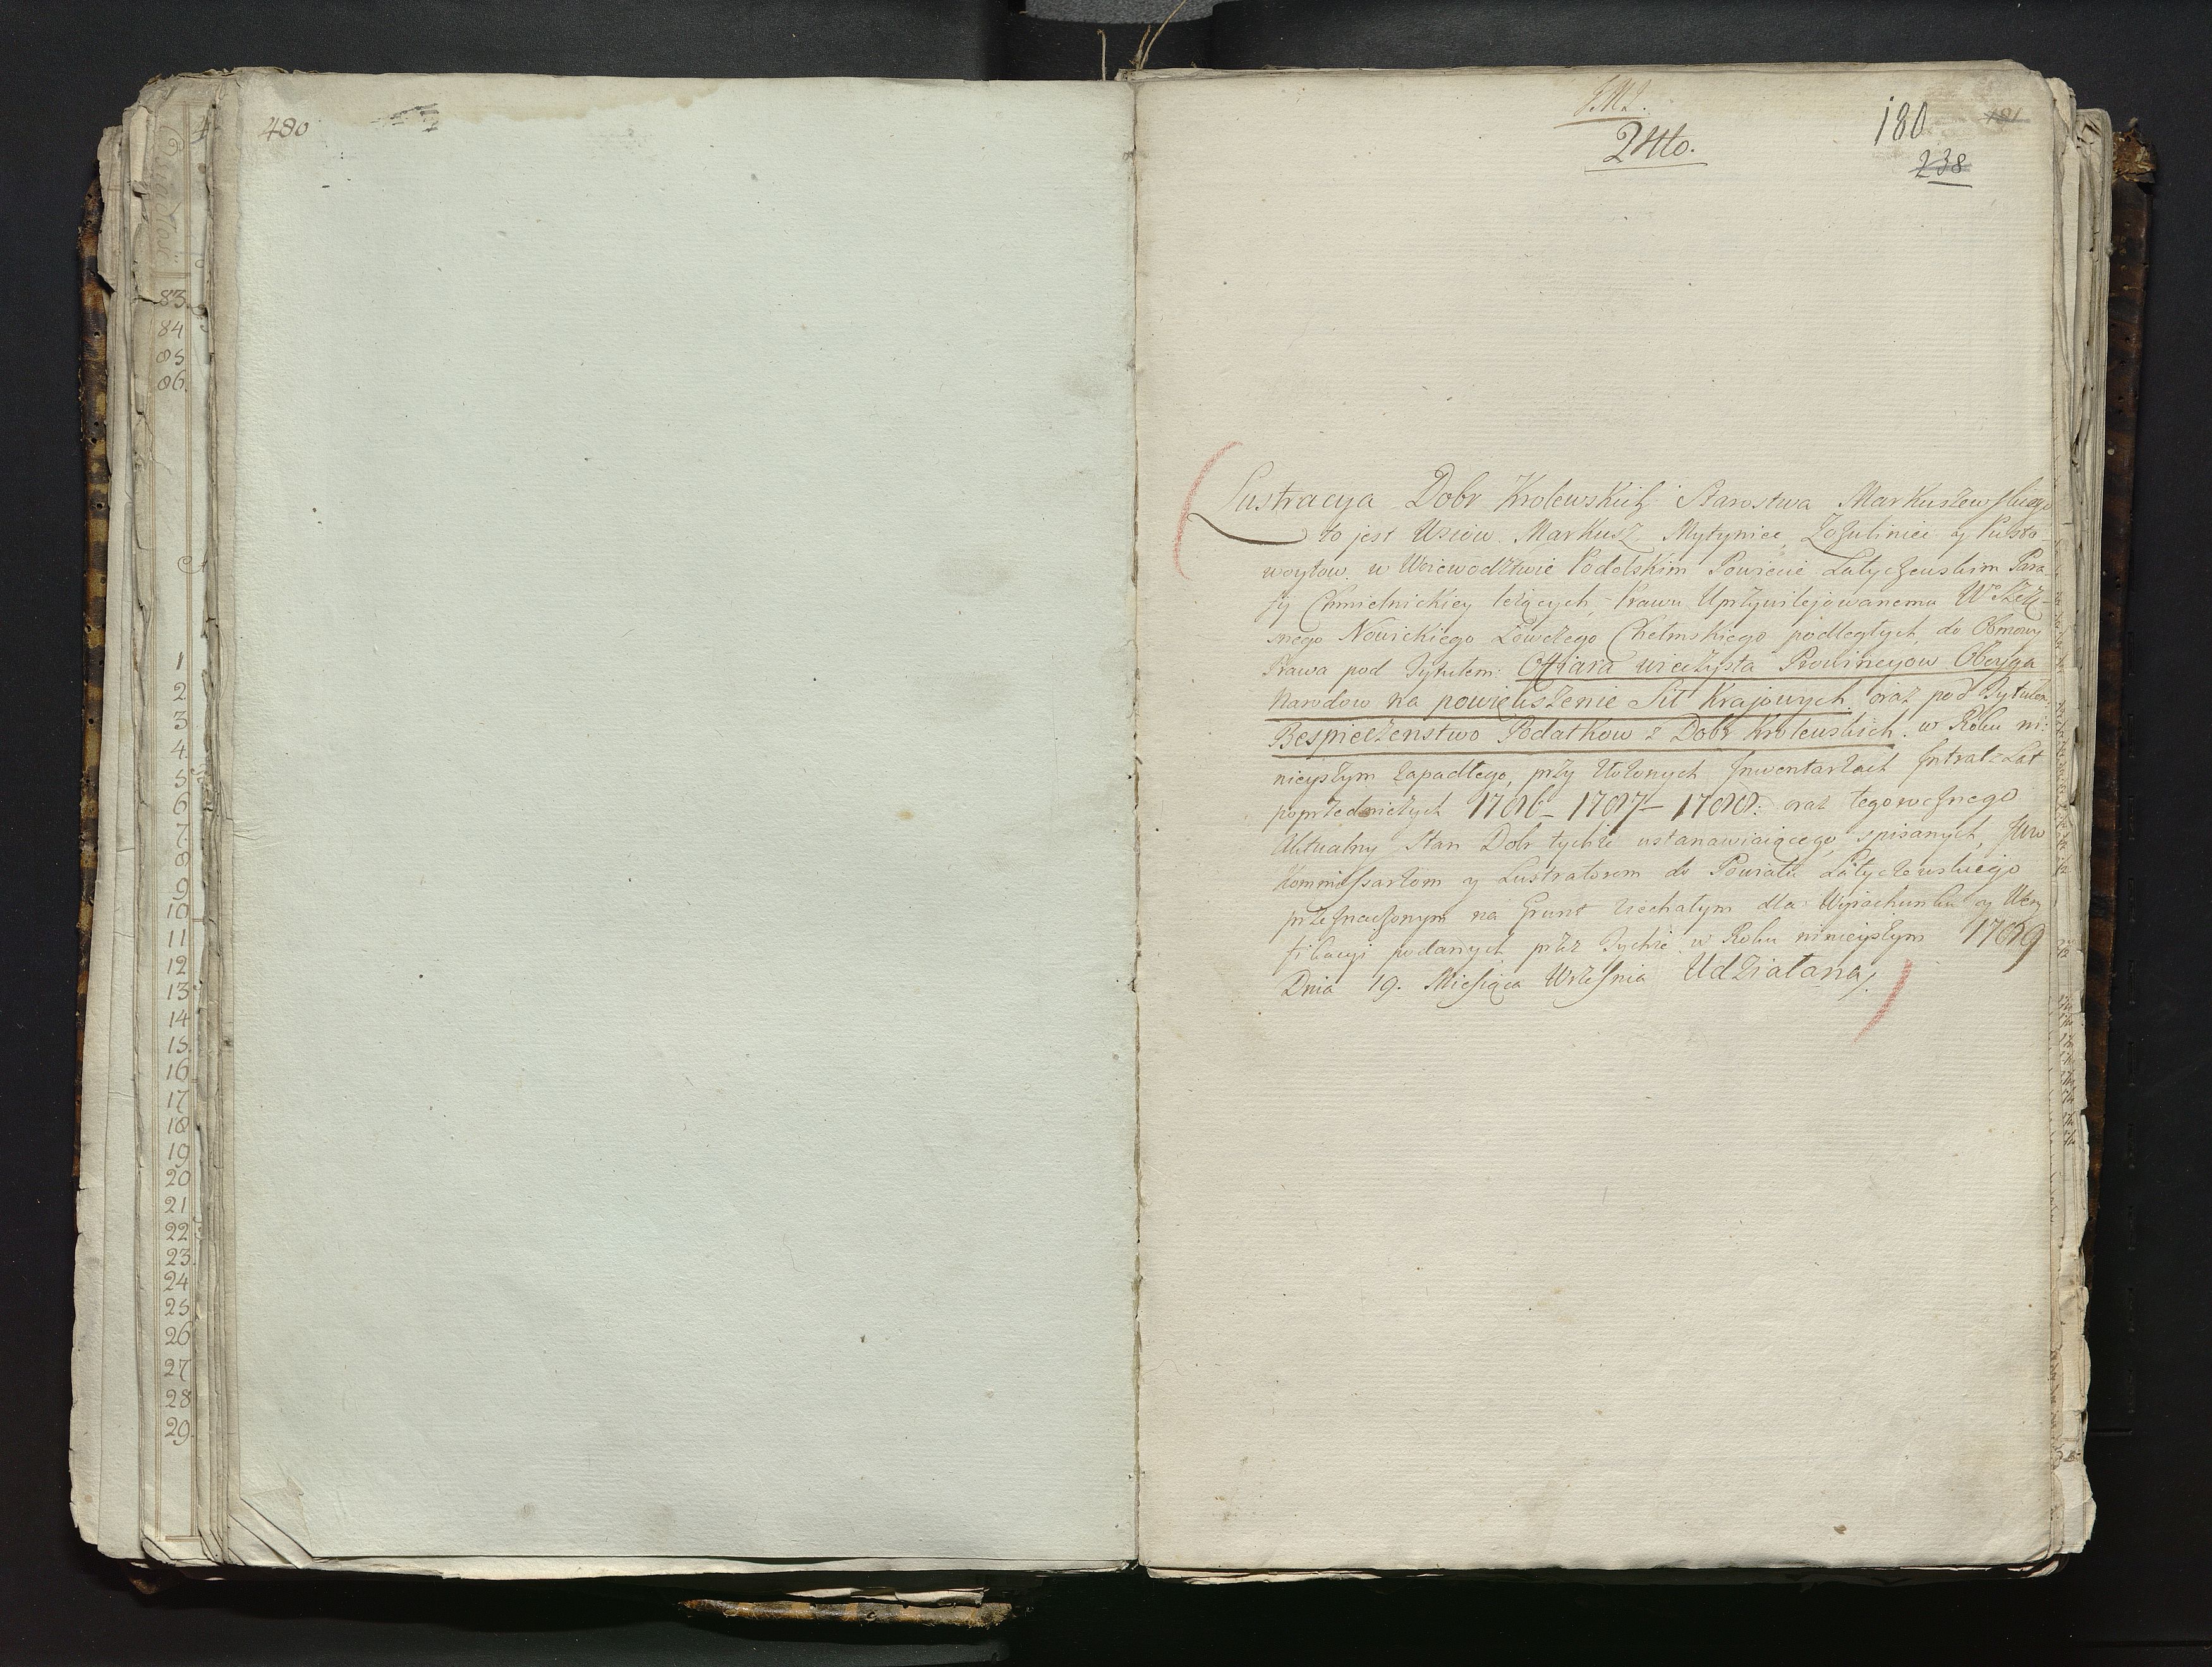 480
83.
84
85
86.
1
2
3
4.
5
6
7.
8
9
10
11
12
13
14
15.
16
17
18
19
20
21
22
23.
24
25
26
27
28
29.
180
181
238
Lustracya Dobr Krolewskich Starostwa Markuszewskiego
to jest Wsiow. Markusz, Mytynice, Zozulinice y Pusto-
woytow. w Woiewodztwie Podolskim Powiecie Latyczewskim Para-
fij Chmielnickiey leżących, Prawu Uprzywilejowanemu
snego Nowickiego Łowczego Chełmskiego podległych, do Osnowy
Prawa pod Tytułem: Offiara wieczysta Prowincyow Oboyga
Narodow na powiększenie Sił Krajowych. oraz pod Tytułem
Bespieczenstwo Podatkow z Dobr Krolewskich. w Roku ni:
nieyszym zapadłego, przy złożonych Inwentarzach Intrat z Lat
poprzedniczych 1786 - 1787 - 1788: oraz tegowesnego
Aktualny Stan Dobr tychże ustanawiaiącego, spisanych,
Kommissarzom y Lustratorom do Powiatu Latyczewskiego
przeznaczonym na Grunt ziechałym dla Wyrachunku y Wery
fikacyi podanych przez Tychże w Roku ninieyszym 1789
Dnia 19. Miesiąca Wrzesnia Udziałana.